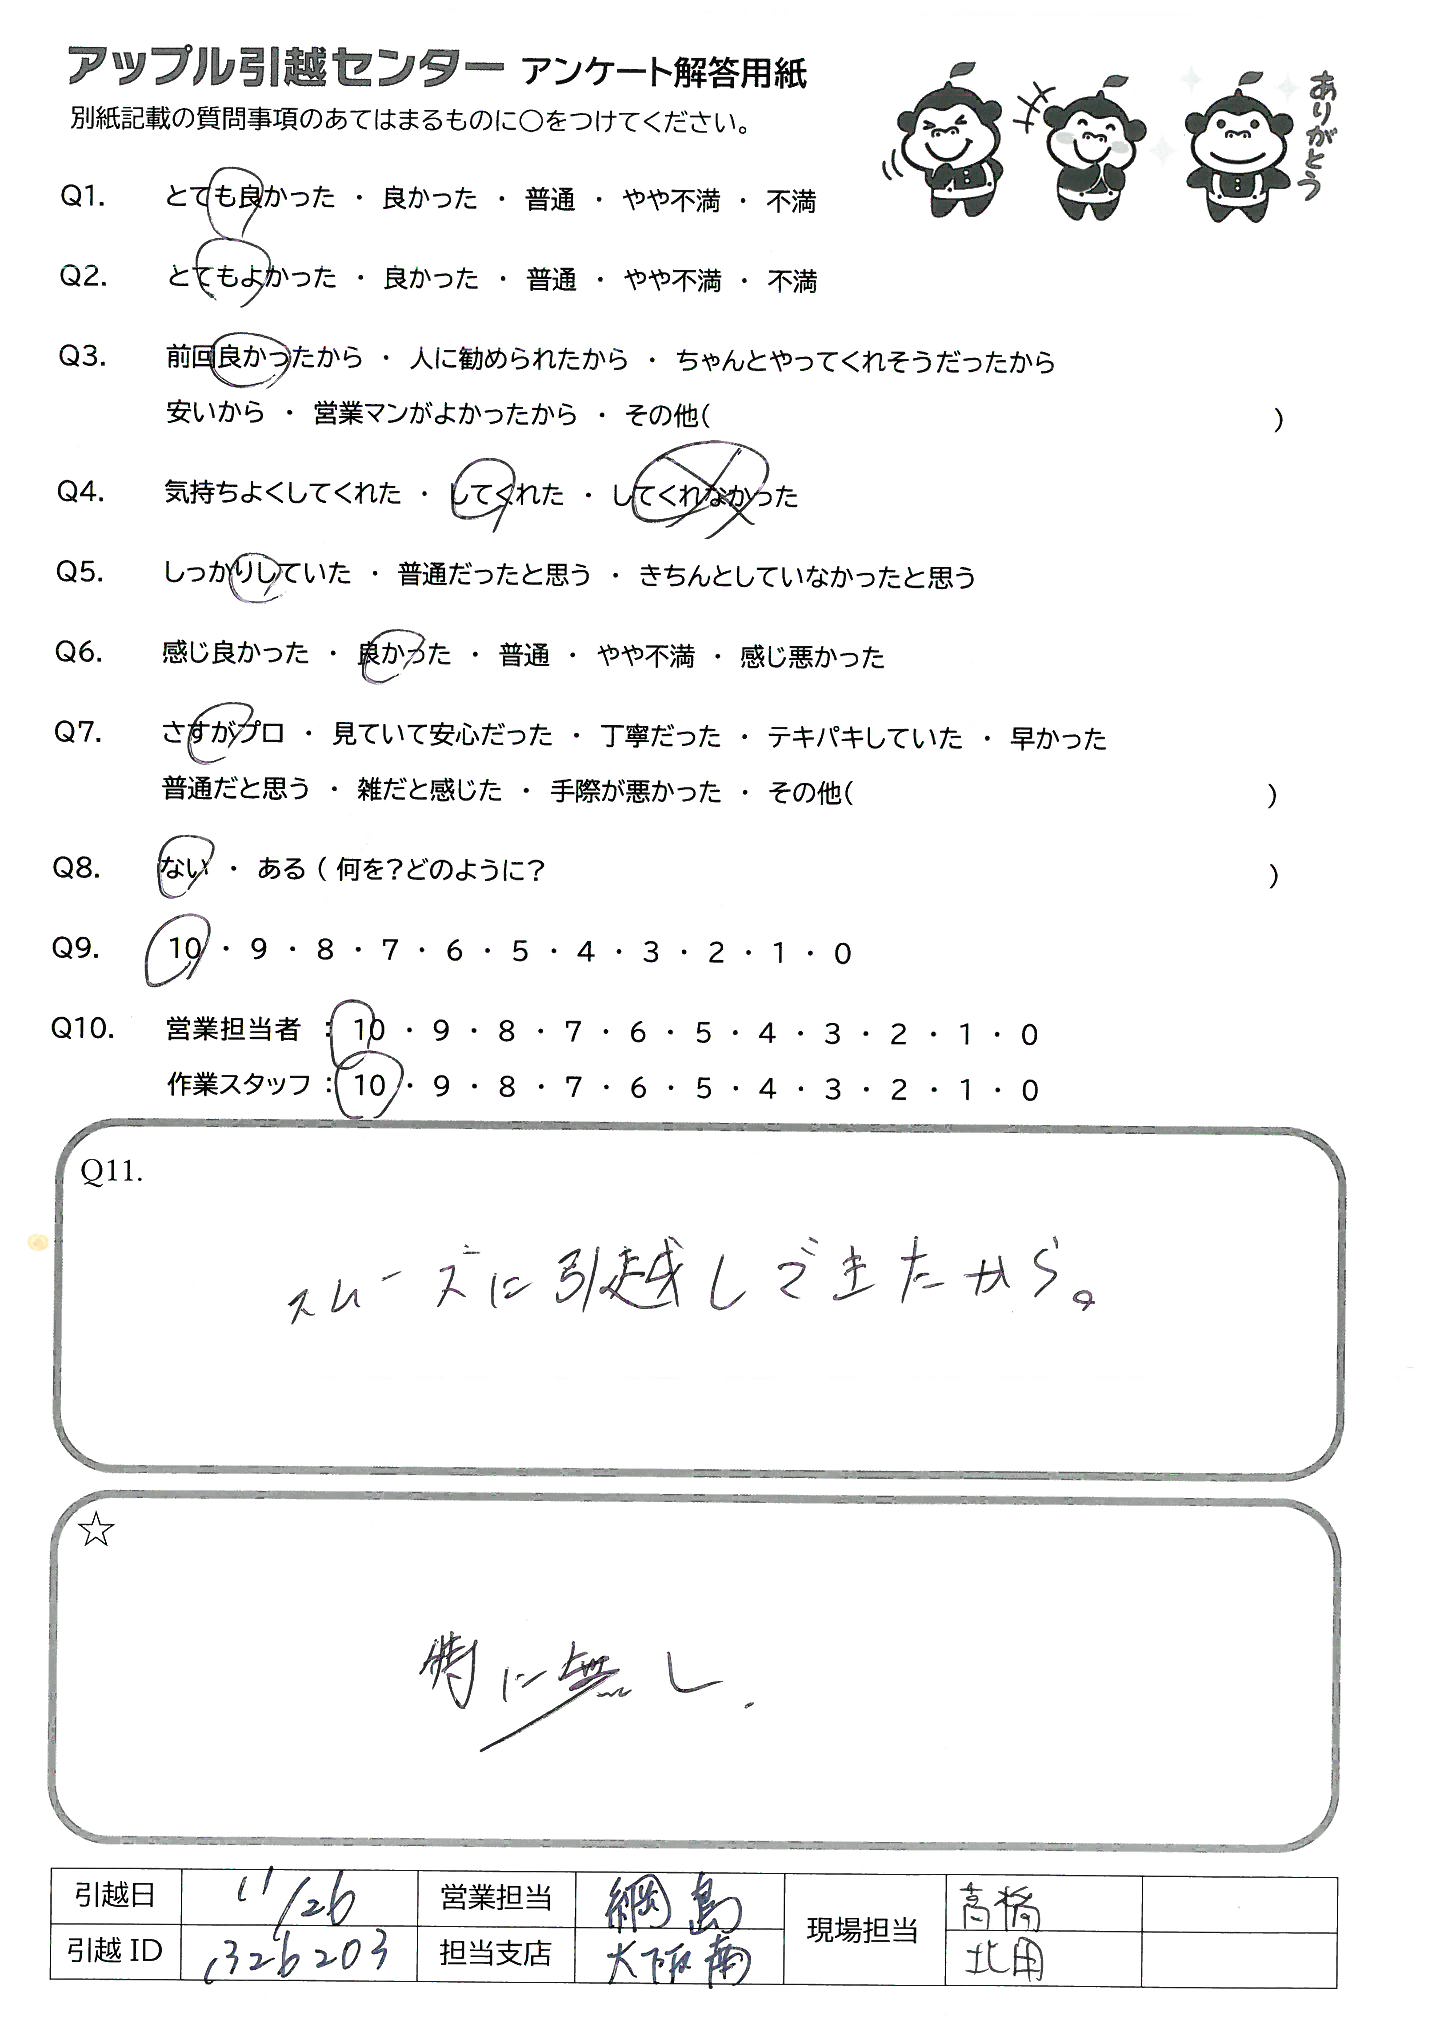 アップル引越センター アンケート解答用紙
別紙記載の質問事項のあてはまるものに○をつけてください。
ありがとう
Q1. とても良かった ・ 良かった ・ 普通 ・ やや不満 ・ 不満
Q2. とてもよかった ・ 良かった ・ 普通 ・ やや不満 ・ 不満
Q3. 前回良かったから ・ 人に勧められたから ・ ちゃんとやってくれそうだったから
安いから ・ 営業マンがよかったから ・ その他( )
Q4. 気持ちよくしてくれた ・ してくれた ・ してくれなかった
Q5. しっかりしていた ・ 普通だったと思う ・ きちんとしていなかったと思う
Q6. 感じ良かった ・ 良かった ・ 普通 ・ やや不満 ・ 感じ悪かった
Q7. さすがプロ ・ 見ていて安心だった ・ 丁寧だった ・ テキパキしていた ・ 早かった
普通だと思う ・ 雑だと感じた ・ 手際が悪かった ・ その他( )
Q8. ない ・ ある ( 何を?どのように? )
Q9. 10 ・ 9 ・ 8 ・ 7 ・ 6 ・ 5 ・ 4 ・ 3 ・ 2 ・ 1 ・ 0
Q10. 営業担当者 : 10 ・ 9 ・ 8 ・ 7 ・ 6 ・ 5 ・ 4 ・ 3 ・ 2 ・ 1 ・ 0
作業スタッフ : 10 ・ 9 ・ 8 ・ 7 ・ 6 ・ 5 ・ 4 ・ 3 ・ 2 ・ 1 ・ 0
Q11.
スムーズに引越しできたから。
☆
特に無し.
引越日 11/26 営業担当 綱島 現場担当 高橋
引越 ID 1326203 担当支店 大阪南 北田